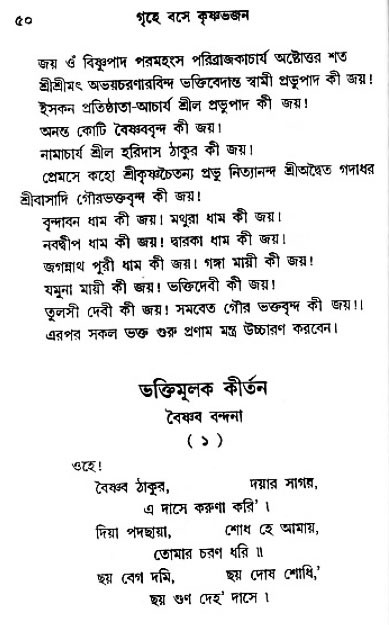 ৫০ গৃহে বসে কৃষ্ণভজন
জয় ওঁ বিষ্ণুপাদ পরমহংস পরিব্রাজকাচার্য অষ্টোত্তর শত
শ্রীশ্রীমৎ অভয়চরণারবিন্দ ভক্তিবেদান্ত স্বামী প্রভুপাদ কী জয়!
ইসকন প্রতিষ্ঠাতা-আচার্য শ্রীল প্রভুপাদ কী জয়!
অনন্ত কোটি বৈষ্ণববৃন্দ কী জয়!
নামাচার্য শ্রীল হরিদাস ঠাকুর কী জয়!
প্রেমসে কহো শ্রীকৃষ্ণচৈতন্য প্রভু নিত্যানন্দ শ্রীঅদ্বৈত গদাধর
শ্রীবাসাদি গৌরভক্তবৃন্দ কী জয়!
বৃন্দাবন ধাম কী জয়! মথুরা ধাম কী জয়!
নবদ্বীপ ধাম কী জয়! দ্বারকা ধাম কী জয়!
জগন্নাথ পুরী ধাম কী জয়! গঙ্গা মায়ী কী জয়!
যমুনা মায়ী কী জয়! ভক্তিদেবী কী জয়!
তুলসী দেবী কী জয়! সমবেত গৌর ভক্তবৃন্দ কী জয়!।
এরপর সকল ভক্ত গুরু প্রণাম মন্ত্র উচ্চারণ করবেন।
ভক্তিমূলক কীর্তন
বৈষ্ণব বন্দনা
( ১ )
ওহে!
বৈষ্ণব ঠাকুর, দয়ার সাগর,
এ দাসে করুণা করি' ।
দিয়া পদছায়া, শোধ হে আমায়,
তোমার চরণ ধরি ॥
ছয় বেগ দমি, ছয় দোষ শোধি,'
ছয় গুণ দেহ' দাসে ।